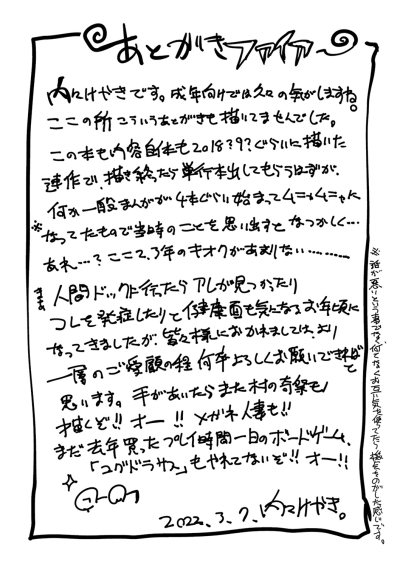 あとがきファイアー
内々けやきです。成年向けでは久々の気がしますね。
ここの所こういうあとがきも描いてませんでした。
この本も内容自体も2018?9?ぐらいに描いた
連作で、描き終ったら単行本出してもらうはずが、
何か一般まんがが4本ぐらい始まってムニャムニャに
※なってたもので当時のことを思い出すと なつかしく…
あれ…?ここ2、3年のキオクがあまりない………
人間ドックに行ったらアレが見つかったり
コレを発症したりと健康面も気になるお年頃に
なってきましたが、皆々様におかれましては、より
一層のご愛顧の程 何卒よろしくお願いできればと
思います。手があいたらまた村の奇祭も
描くぞ!!オー!!メガネ人妻も!!
まだ去年買ったプレイ時間一日のボードゲーム、
「ユグドラサス」もやれてないぞ!!オー!!
2022.3.7.内々けやき。
※話が悪いという事でなく、何となくお互い気を使ってたら機をのがした感じです。